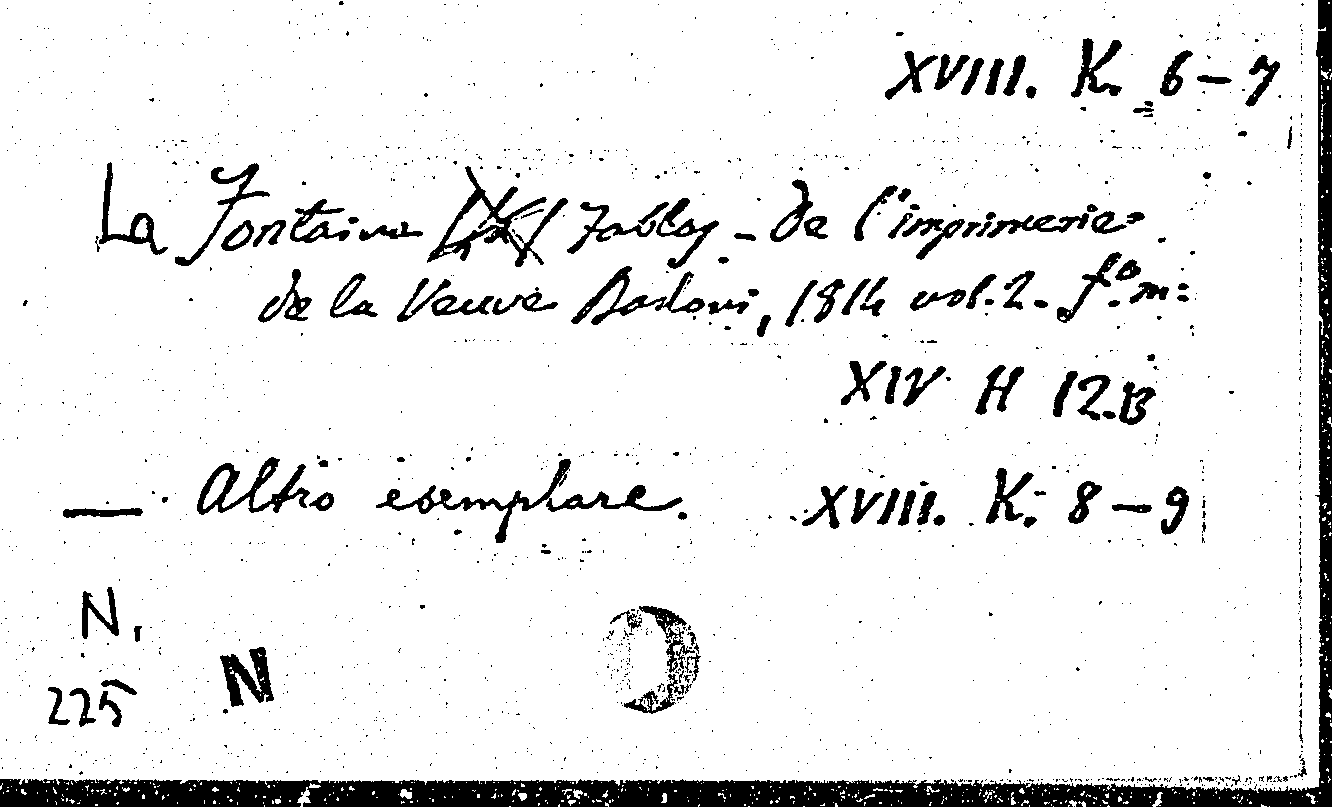 XVIII. K. 6 – 7
La Fontaine Fables – de l'imprimerie
de la Veuve Bodoni, 1814 vol. 2. f.º m:
XIV H 12.B
— Altro esemplare. XVIII. K. 8 – 9
N.
225
N